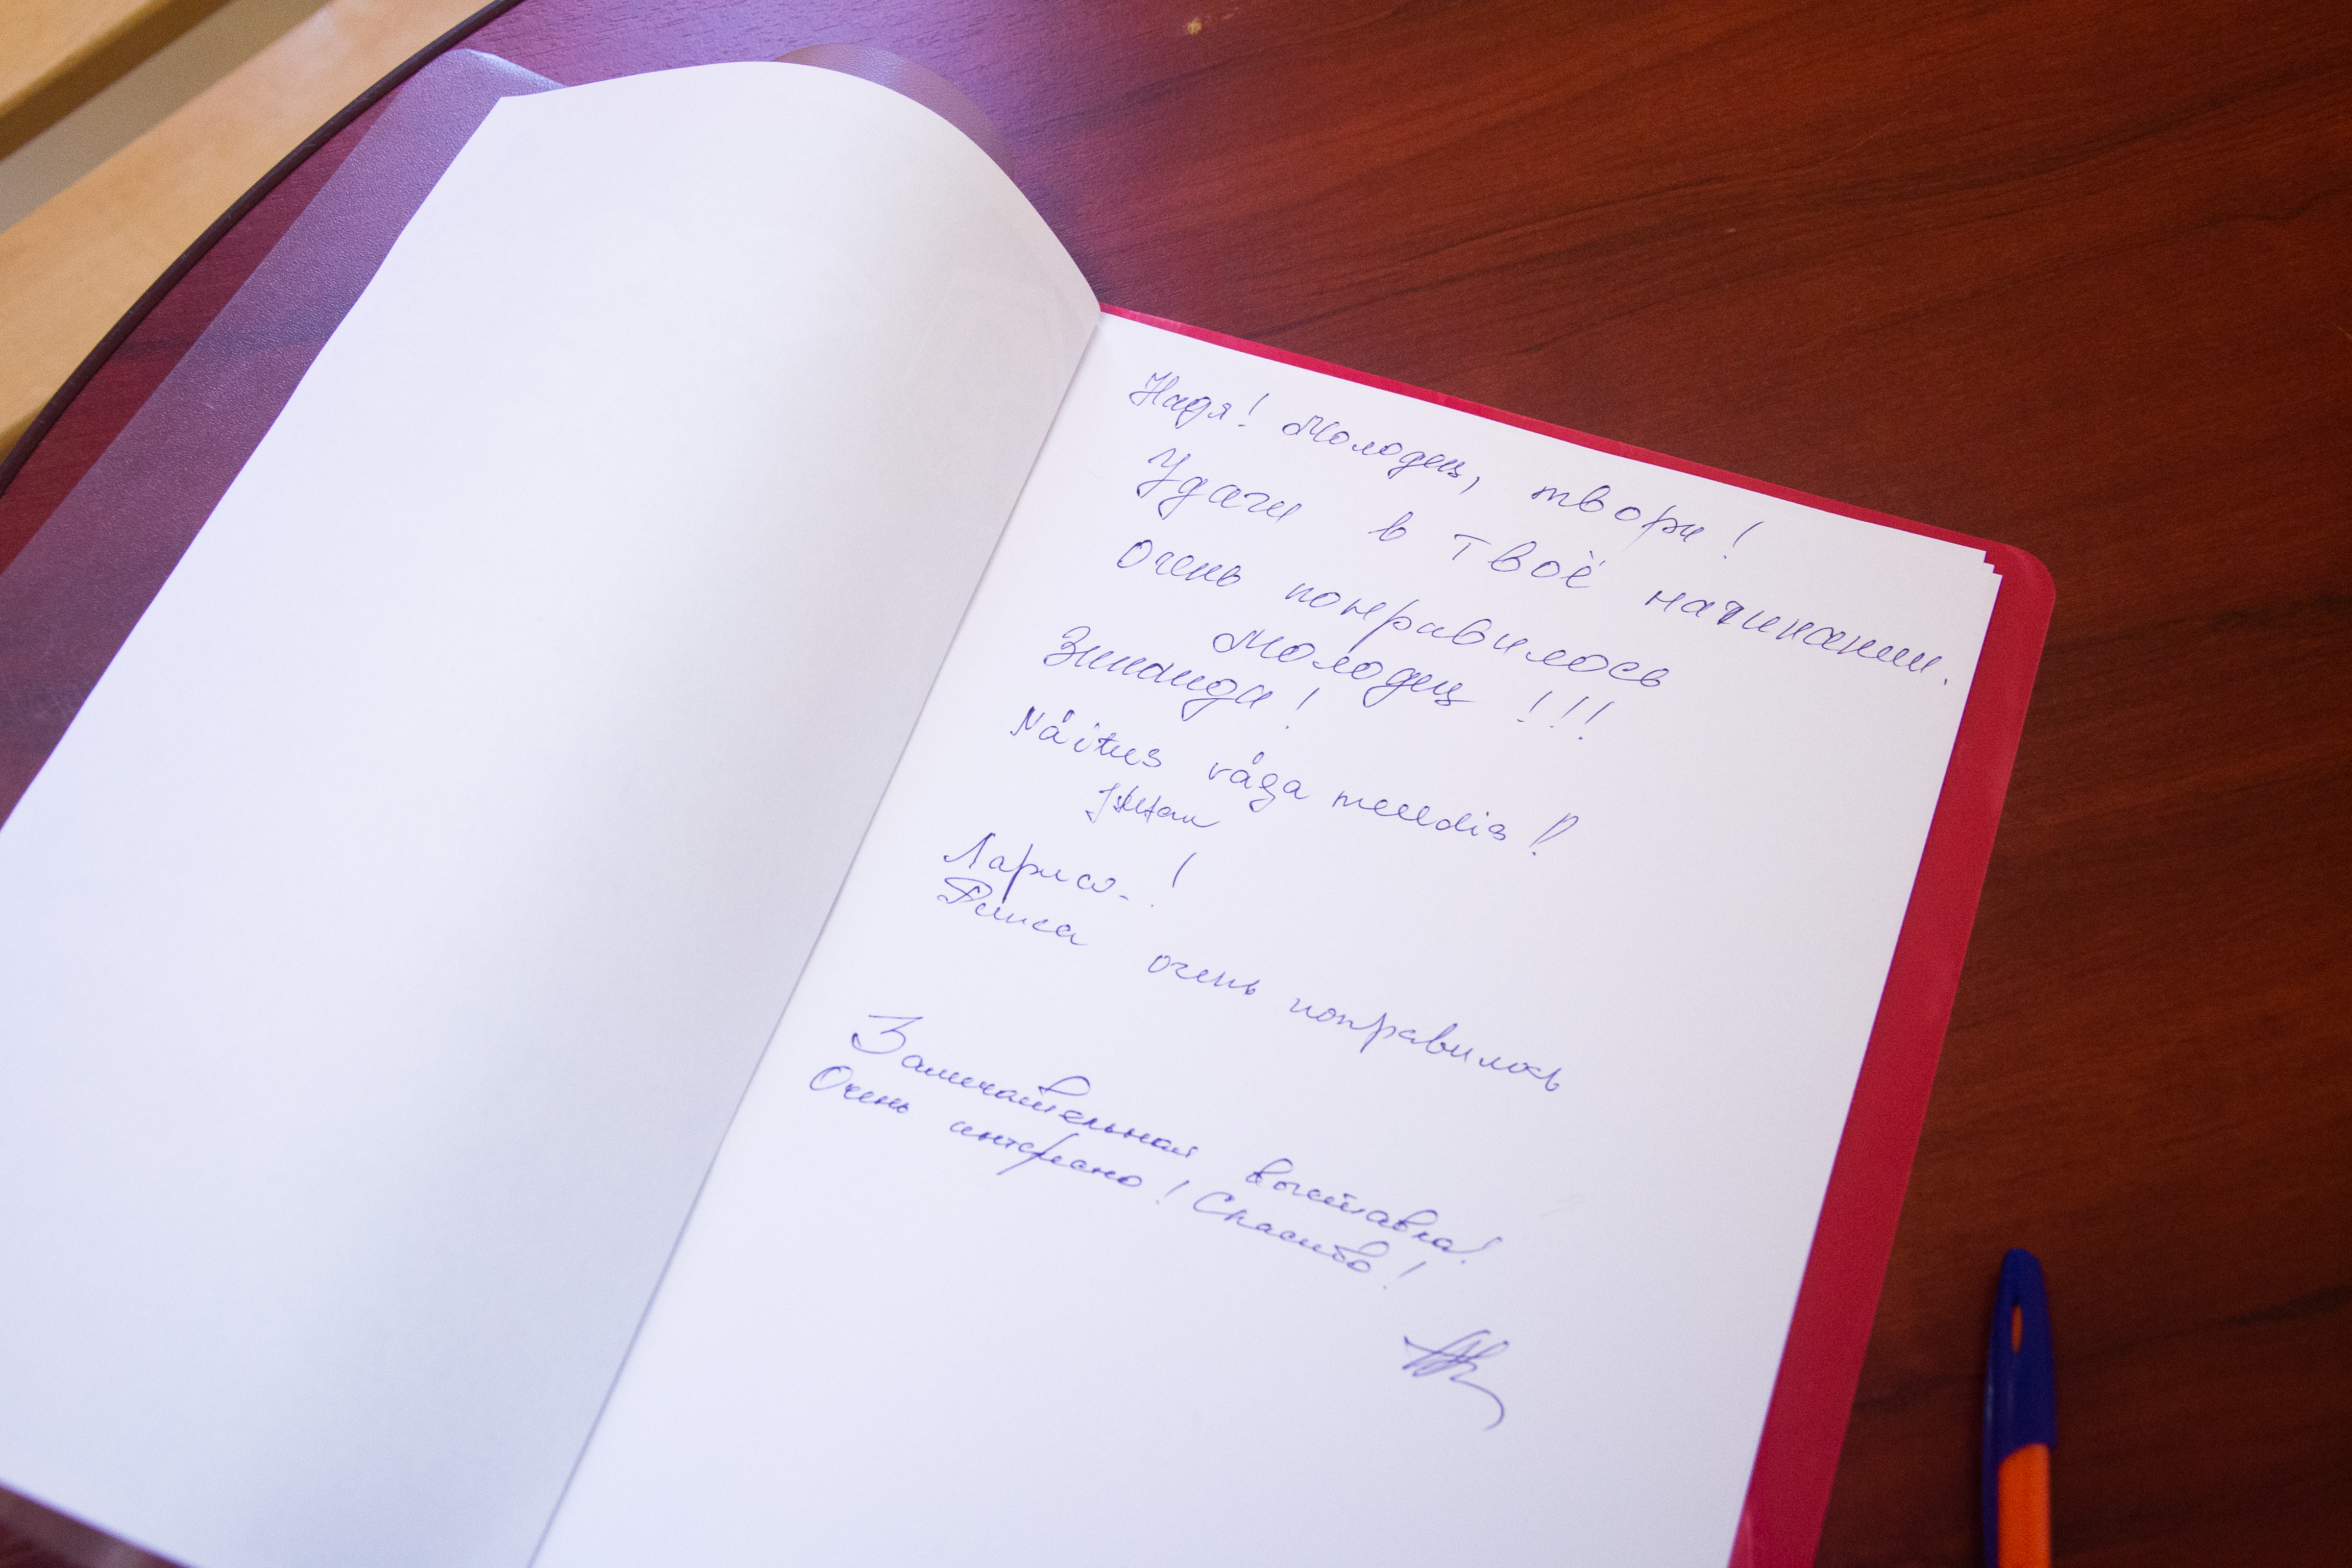 Надя! Молодец, твори!
Удачи в твоё начинании.
Очень понравилось
Молодец !!!
Зинаида!
Näitus väga meeldis!
Лариса!
Раиса очень понравилось
Замечательная выставка!
Очень интересно! Спасибо!